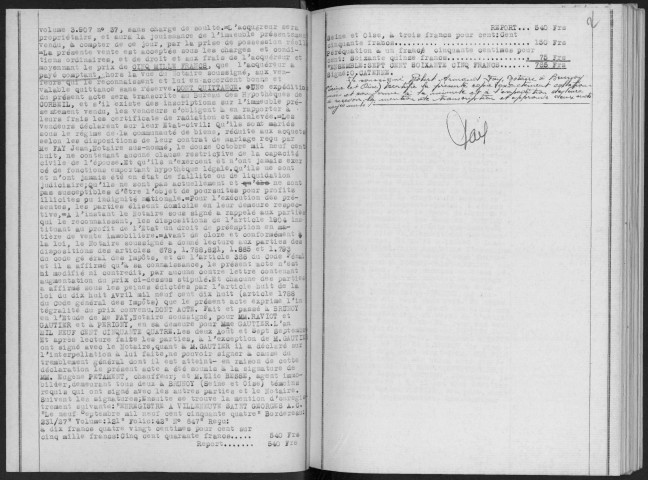 volume 3.907 n° 27, sans charge de soulte.=L'acquéreur sera
propriétaire, et aura la jouissance de l'immeuble présentement
vendu, à compter de ce jour, par la prise de possession réelle
=La présente vente est acceptée sous les charges et condi-
tions ordinaires, et de droit et aux frais de l'acquéreur et
moyennant le prix de CINQ MILLE FRANCS, que l'acquéreur a
payé comptant, hors la vue du Notaire soussigné, aux ven-
deurs que le reconnaissent et lui en accordent bonne et
valable quittance sans réserve. DONT QUITTANCE.=Une expédition
du présent acte sera transcrite au bureau des hypothèques de
CORBEIL, et s'il existe des inscriptions sur l'immeuble pré-
sentement vendu, les vendeurs s'obligent à en rapporter à
leurs frais les certificats de radiation et mainlevée.=Les
vendeurs déclarent sur leur état-civil: Qu'ils sont mariés
sous le régime de la communauté de biens, réduite aux acquêts
selon les dispositions de leur contrat de mariage reçu par
Me FAY Jean, Notaire sus-nommé, le douze Octobre mil neuf cent
huit, ne contenant aucune clause restrictive de la capacité
civile de l'épouse. Et qu'ils n'exercent et n'ont jamais exer
cé de fonctions emportant hypothèque légale. Qu'ils ne sont
et n'ont jamais été en état de faillite ou de liquidation
judiciaire, Qu'ils ne sont pas actuellement et ne sont
pas susceptibles d'être l'objet de poursuites pour profits
illicites ou indignité nationale.=Pour l'exécution des pré-
sentes, les parties élisent domicile en leur demeure respec-
tive.=A l'instant le Notaire sous signé a rappelé aux parties
qui le reconnaissent, les dispositions de l'article 1964 ins
tituant au profit de l'Etat un droit de préemption en ma-
tière de vente immobilière.=Avant de clore et conformément à
la loi, le Notaire soussigné a donné lecture aux parties des
dispositions des articles 678, 1.793
du code général des Impôts, et de l'article 366 du Code Pénal
et il a affirmé qu'à sa connaissance, le présent acte n'est
ni modifié ni contredit, par aucune contre lettre contenant
augmentation du prix ci-dessus stipulé. Et chacune des parties
a affirmé sous les peines édictées par l'article huit de la
loi du dix huit Avril mil neuf cent dix huit (article 1793
du code général des Impôts) que le présent acte exprime l'in
tégralité du prix convenu. DONT ACTE. Fait et passé à BRUNOY
en l'Etude de Me FAY, Notaire soussigné, pour MM. RAVIOT et
GAUTIER et à PERIGNY, en sa demeure pour Mme GAUTIER. L'an
MIL NEUF CENT CINQUANTE QUATRE. Les deux Août et Sept Septembre
Et après lecture faite les parties, à l'exception de M. GAUTIER
ont signé avec le Notaire, quant à M. GAUTIER il a déclaré sur
l'interpellation à lui faite, ne pouvoir signer à cause du
tremblement général dont il est atteint.= En raison de cette
déclaration le présent acte a été soumis à la signature de
MM. Eugène chauffeur; et M. BESSE, agent immo-
bilier, demeurant tous deux à BRUNOY (Seine et Oise) témoins
requis qui ont signé avec les autres parties et le Notaire.
Suivent les signatures; Ensuite se trouve la mention d'enregis
trement suivante: "ENREGISTRE A VILLENEUVE SAINT GEORGES A.C.
"Le neuf Septembre mil neuf cent cinquante quatre" Bordereau
231/27" Volume: 121" Folio: 42" N° 547" Reçu:
à dix francs quatre vingt centimes pour cent sur
cinq mille francs: Cinq cent quarante francs..... 540 Frs
Report....... 540 Frs
2
REPORT... 540 Frs
Seine et Oise, à trois francs pour cent: Cent
cinquante francs............... 150 Frs
Perception à un franc cinquante centimes pour
cent: Soixante quinze francs.......... 75 Frs
"ENSEMBLE: SEPT CENT SOIXANTE CINQ FRANCS... 765 Frs
Je soussigné Fay, notaire à Brunoy
Fay